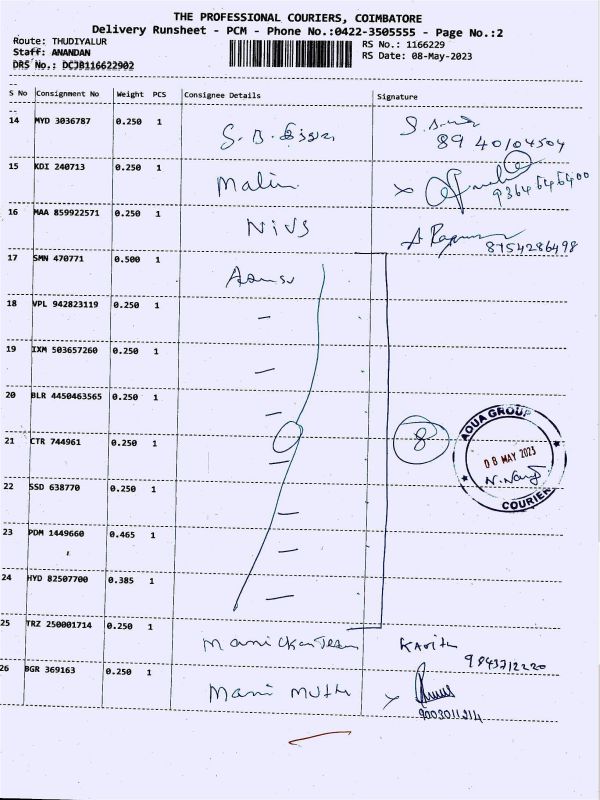 THE PROFESSIONAL COURIERS, COIMBATORE
Delivery Runsheet - PCM - Phone No.:0422-3505555 - Page No.:2
Route: THUDIYALUR
RS No.: 1166229
Staff: ANANDAN
RS Date: 08-May-2023
DRS No.: DCJB116622902
S No Consignment No Weight PCS Consignee Details Signature
14 MYD 3036787 0.250 1
89 40104504
15 KDI 240713 0.250 1 Malin
9364646400
16 MAA 859922571 0.250 1 NIVS
8754286498
17 SMN 470771 0.500 1
18 VPL 942823119 0.250 1 —
19 IXM 503657260 0.250 1 —
20 BLR 4450463565 0.250 1 —
21 CTR 744961 0.250 1 — 8
AQUA GROUP
08 MAY 2023
COURIER
22 SSD 638770 0.250 1 —
23 PDM 1449660 0.465 1 —
24 HYD 82507700 0.385 1 —
25 TRZ 250001714 0.250 1
9843712220
26 BGR 369163 0.250 1 Mani Muthu
9003011214